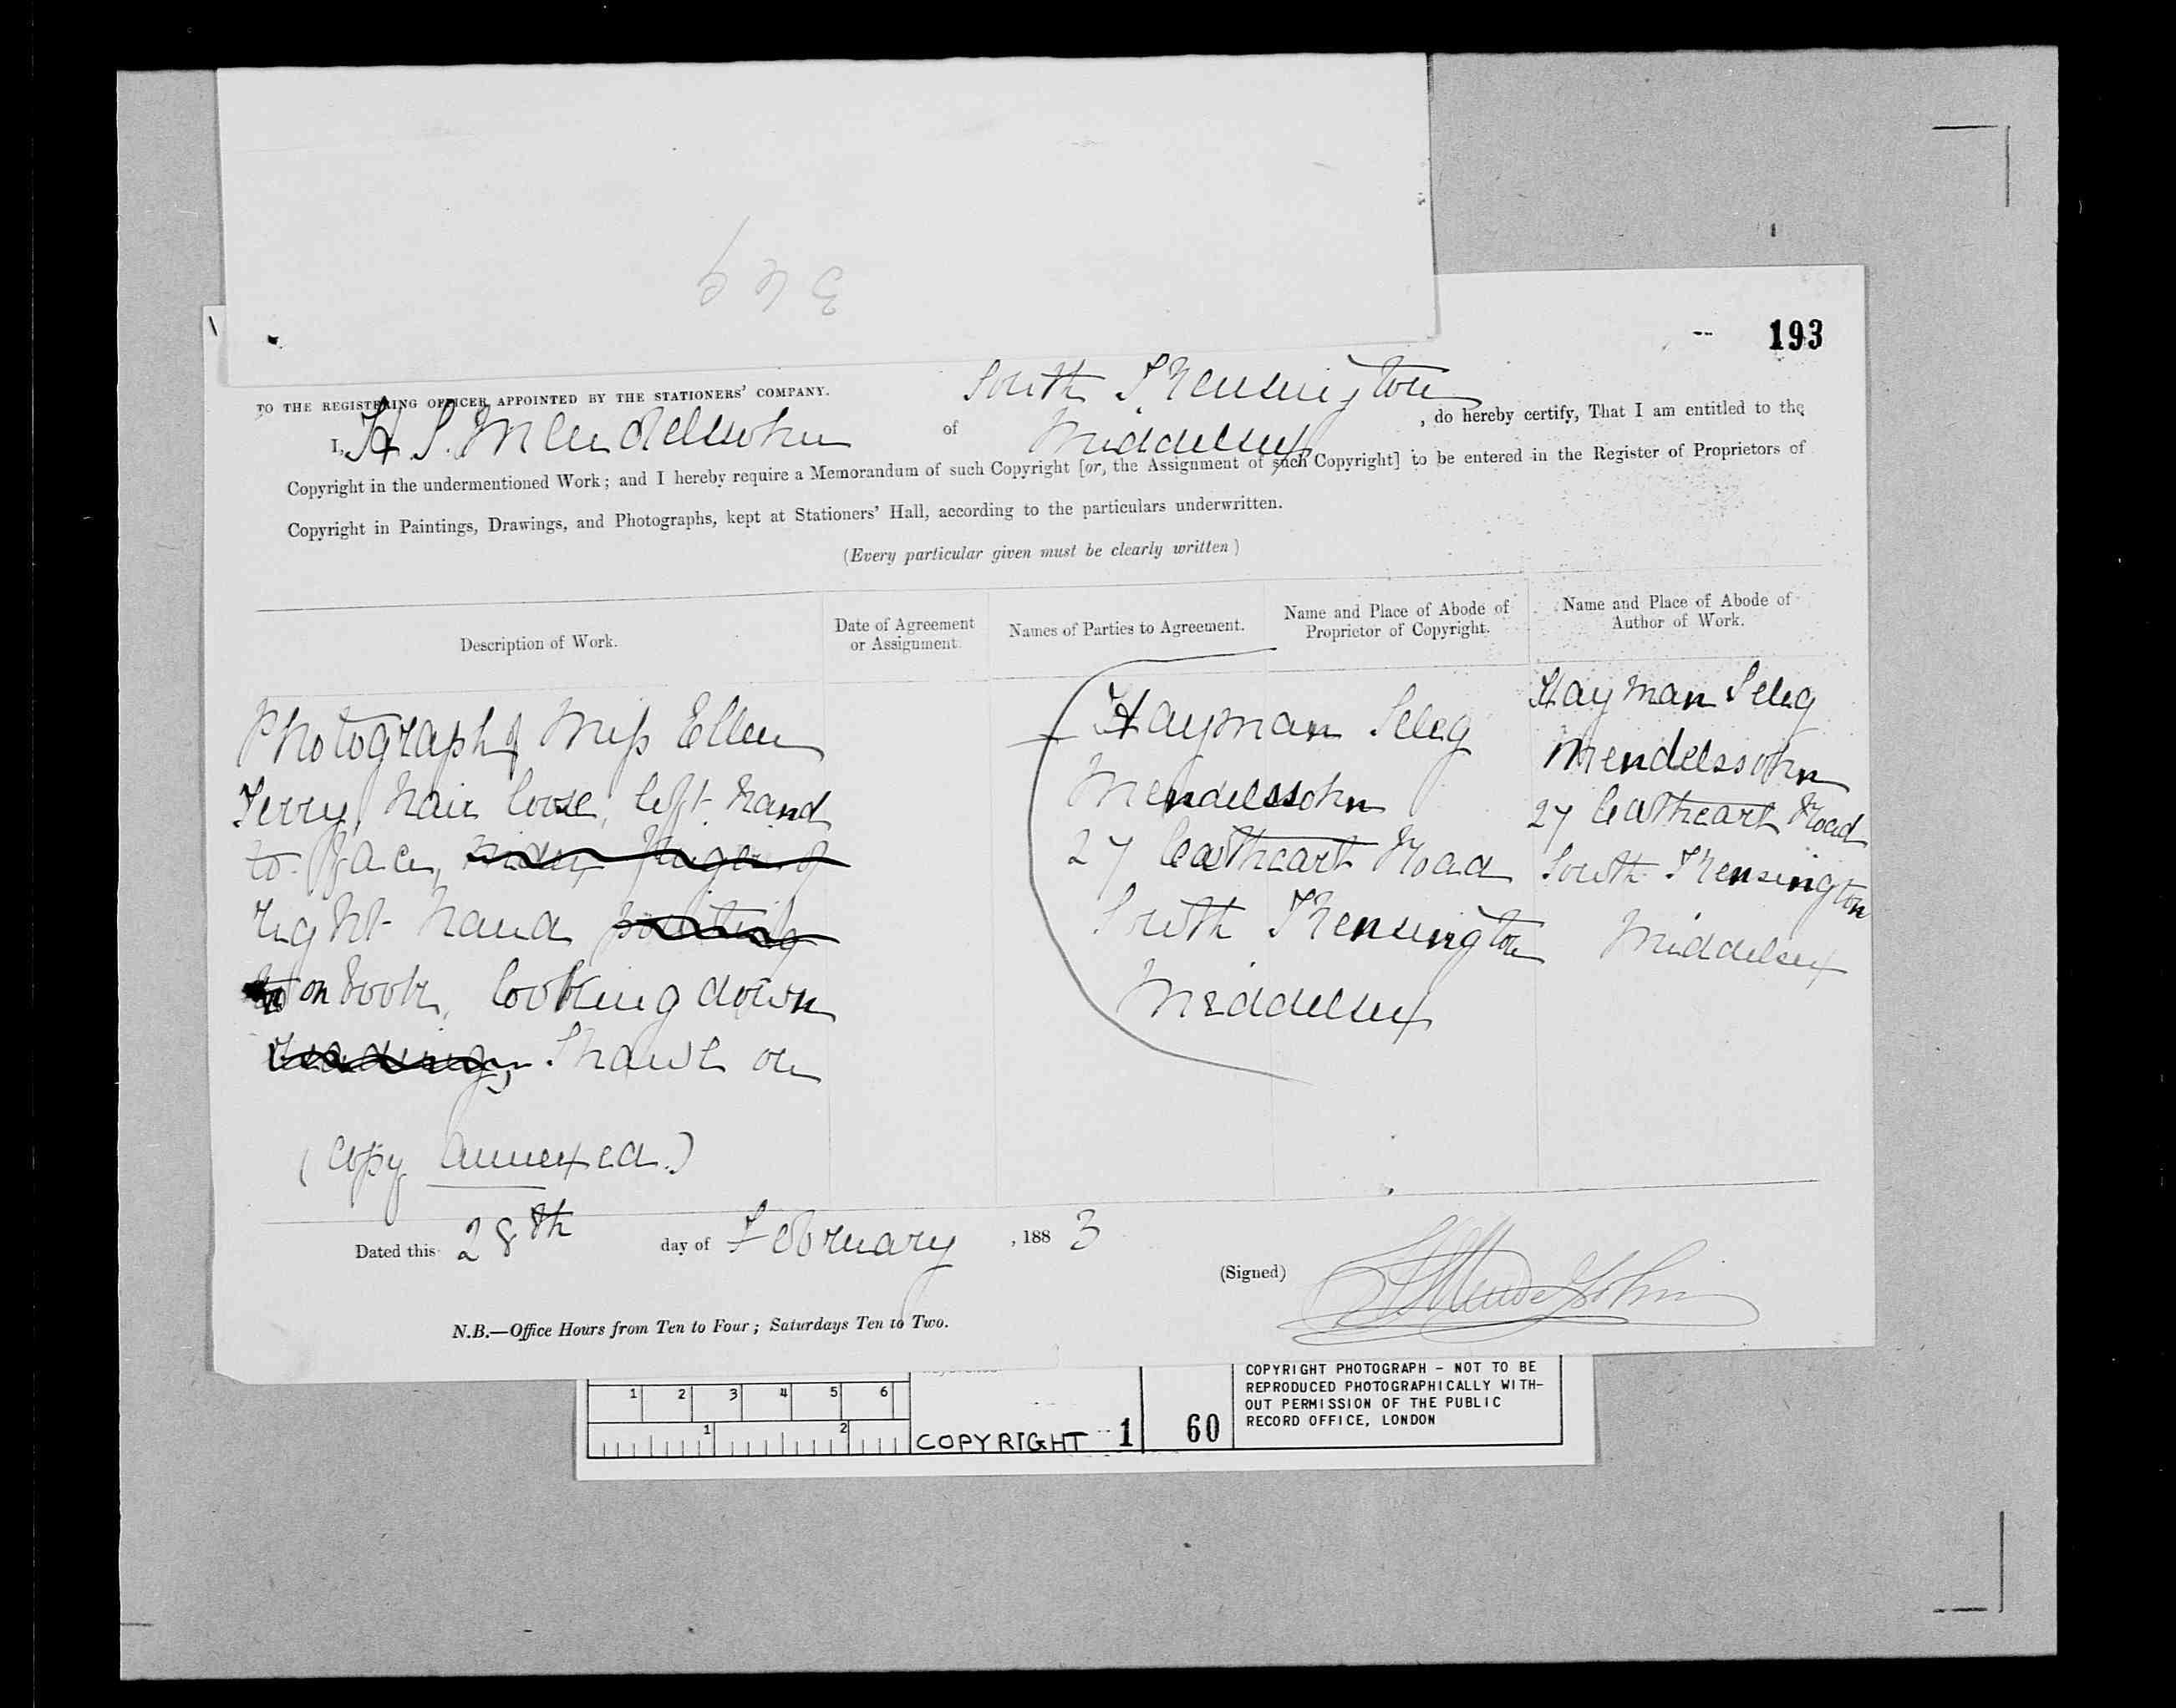 369
193
TO THE REGISTERING OFFICER APPOINTED BY THE STATIONERS' COMPANY.
I, H. S. Mendelssohn of South Kensington Middelsex, do hereby certify, That I am entitled to the
Copyright in the undermentioned Work; and I hereby require a Memorandum of such Copyright [or, the Assignment of such Copyright] to be entered in the Register of Proprietors of
Copyright in Paintings, Drawings, and Photographs, kept at Stationers' Hall, according to the particulars underwritten.
(Every particular given must be clearly written)
Description of Work.
Date of Agreement
or Assignment.
Names of Parties to Agreement.
Name and Place of Abode of
Proprietor of Copyright.
Name and Place of Abode of
Author of Work.
Photograph of Miss Ellen
Terry, hair loose, left hand
to face, index finger of
right hand pointing
to on book, looking down
reading, Shawl on
(Copy annexed.)
Hayman Seleg
Mendelssohn
27 Cathcart Road
South Kensington
Middelsex
Hayman Seleg
Mendelssohn
27 Cathcart Road
South Kensington
Middelsex
Dated this 28th day of February, 1883
(Signed) HSMendelssohn
N.B.—Office Hours from Ten to Four; Saturdays Ten to Two.
1 2 3 4 5 6
1 2
COPYRIGHT 1
60
COPYRIGHT PHOTOGRAPH - NOT TO BE
REPRODUCED PHOTOGRAPHICALLY WITH-
OUT PERMISSION OF THE PUBLIC
RECORD OFFICE, LONDON